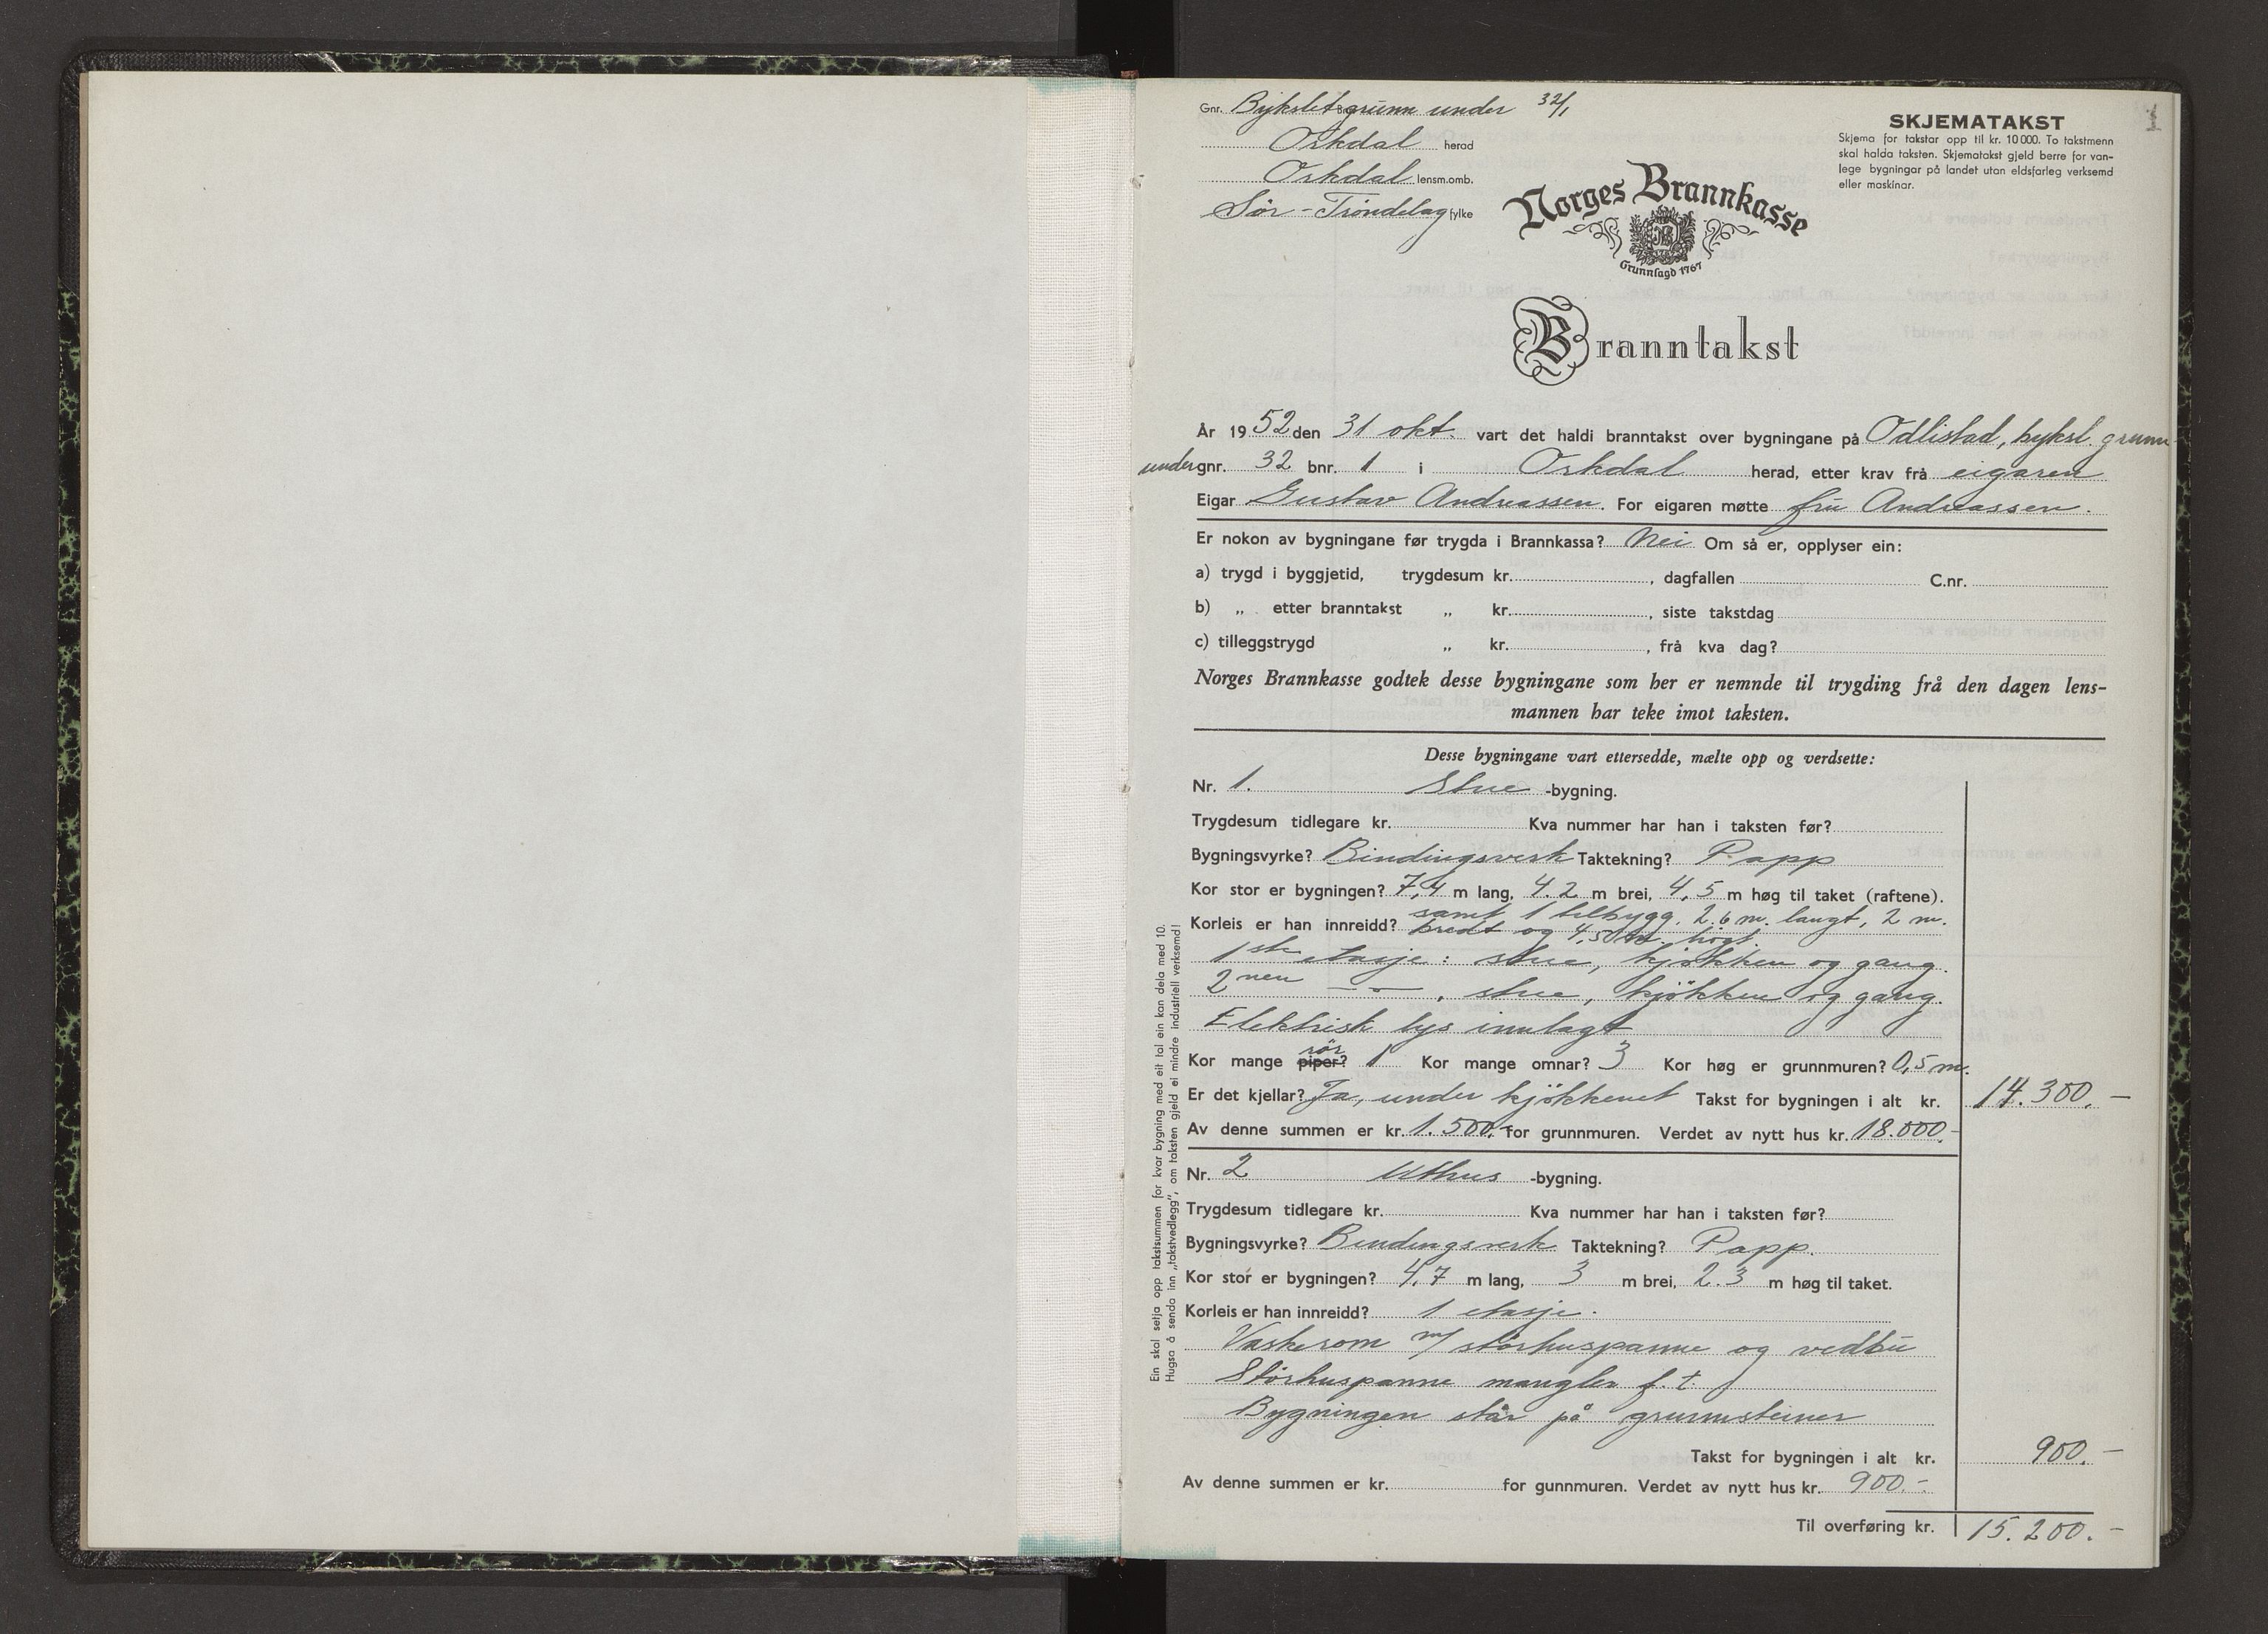 1
SKJEMATAKST
Skjema for takstar opp til kr. 10 000. To takstmenn
skal halda taksten. Skjematakst gjeld berre for van-
lege bygningar på landet utan eldsfarleg verksemd
eller maskinar.
Gnr. Bykslet grunn under 32/1
Orkdal herad
Orkdal lensm.omb.
Sør-Trøndelag fylke
Norges Brannkasse
Grunnlagd 1767
Branntakst
År 1952 den 31 okt. vart det haldi branntakst over bygningane på Odlistad, byksl. grunn
under gnr. 32 bnr. 1 i Orkdal herad, etter krav frå eigaren
Eigar Gustav Andreassen. For eigaren møtte fru Andreassen.
Er nokon av bygningane før trygda i Brannkassa? Nei Om så er, opplyser ein:
a) trygd i byggjetid, trygdesum kr. , dagfallen C.nr.
b) „ etter branntakst „ kr. , siste takstdag
c) tilleggstrygd „ kr. , frå kva dag?
Norges Brannkasse godtek desse bygningane som her er nemnde til trygding frå den dagen lens-
mannen har teke imot taksten.
Desse bygningane vart ettersedde, mælte opp og verdsette:
Nr. 1. Stue -bygning.
Trygdesum tidlegare kr. Kva nummer har han i taksten før?
Bygningsvyrke? Bindingsverk Taktekning? Papp
Kor stor er bygningen? 7,4 m lang, 4.2 m brei, 4,5 m høg til taket (raftene).
samt 1 tilbygg. 2.6 m. langt, 2 m.
Korleis er han innreidd? bredt og 4,50 m. högt.
1ste etasje: stue, kjökken og gang.
2nen —"— , stue, kjökken og gang.
Elektrisk lys innlagt
Kor mange piper? rör 1 Kor mange omnar? 3 Kor høg er grunnmuren? 0,5 m.
Er det kjellar? Ja, under kjökkenet Takst for bygningen i alt kr. 14.300.-
Av denne summen er kr. 1.500.- for grunnmuren. Verdet av nytt hus kr. 18.000.-
Nr. 2 Uthus -bygning.
Trygdesum tidlegare kr. Kva nummer har han i taksten før?
Bygningsvyrke? Bindingsverk Taktekning? Papp.
Kor stor er bygningen? 4,7 m lang, 3 m brei, 2.3 m høg til taket.
Korleis er han innreidd? 1 etasje.
Vaskerom m/ störhuspanne og vedbu
Störhuspanne mangler f. t.
Bygningen står på grunnsteiner
Takst for bygningen i alt kr. 900.-
Av denne summen er kr. for gunnmuren. Verdet av nytt hus kr. 900.-
Til overføring kr. 15.200.-
Ein skal setja opp takstsummen for kvar bygning med eit tal ein kan dela med 10.
Hugsa å senda inn „takstvedlegg", om taksten gjeld ei mindre industriell verksemd!